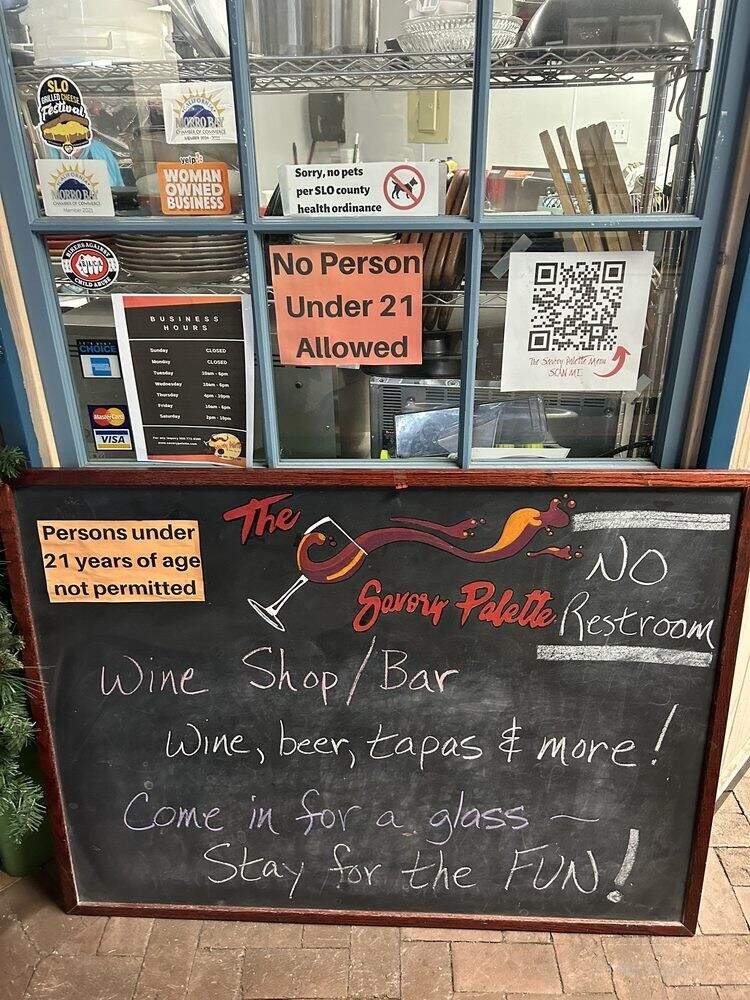 SLO
GRILLED CHEESE
Festival
CALIFORNIA
MORRO BAY
CHAMBER OF COMMERCE
MORRO BAY
CHAMBER OF COMMERCE
Member 2021
yelp
WOMAN
OWNED
BUSINESS
Sorry, no pets
per SLO county
health ordinance
BIKERS AGAINST
CHILD ABUSE
No Person
Under 21
Allowed
The Savory Palette Menu
SCAN ME
CHOICE
MasterCard
VISA
BUSINESS
HOURS
Sunday CLOSED
Monday CLOSED
Tuesday 10am - 6pm
Wednesday 10am - 6pm
Thursday 4pm - 10pm
Friday 10am - 6pm
Saturday 2pm - 10pm
Persons under
21 years of age
not permitted
The
Savory Palette
NO
Restroom
Wine Shop/Bar
Wine, beer, tapas & more!
Come in for a glass ~
Stay for the FUN!